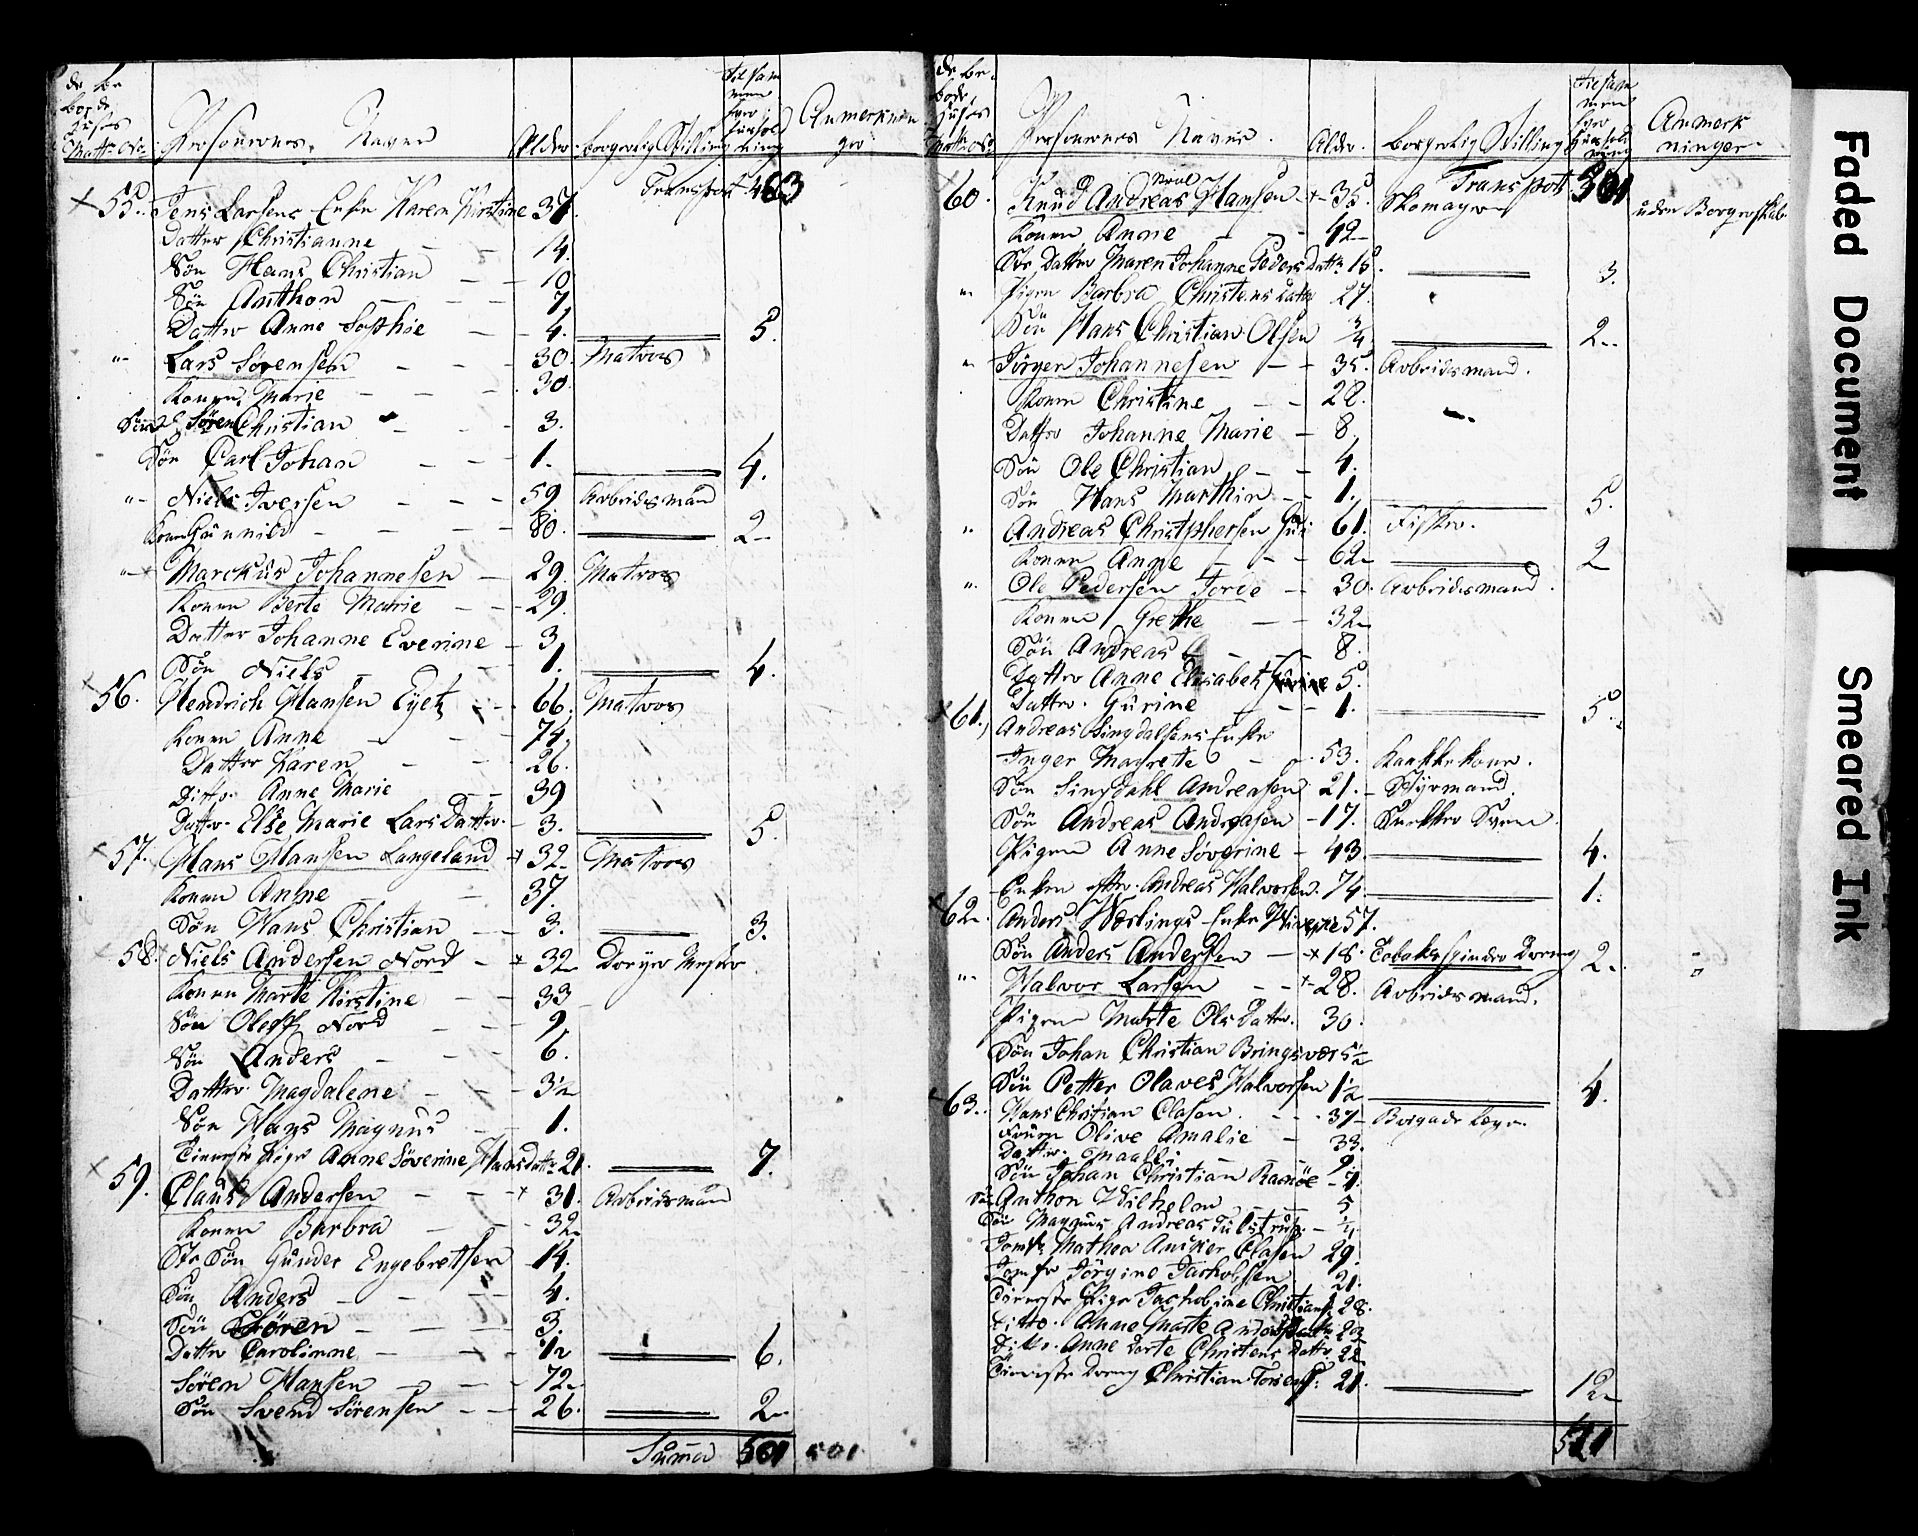 de be
bode
Huses
Mattr No.
Personernes Navne
Alder
borgerlig Stilling
tilsam
men
hver
Huushold
ning
Anmerknin
ger
Transport 463
55. Jens Larsens Enke Karen Kirstine 37.
Datter Christianne 14.
Søn Hans Christian 10
Søn Anthon 7
Datter Anne Sophie 4. 5.
Lars Sørensen 30. Matros
Konen Marie 30.
Søn Søren Christian 3.
Søn Carl Johan 1. 4.
Niels Iversen 59 Arbeidsmand
Konen Gunnild 80. 2
Marckus Johannesen 29. Matros
Konen Berte Marie 29.
Datter Johanne Everine 3
Søn Niels 1. 4.
56. Hendrich Hansen Eyek 66. Matros
Konen Anne 74.
Datter Karen 26.
Ditto Anne Marie 39
Datter Else Marie Lars Datter 3. 5.
57. Hans Hansen Langeland 32 Matros
Konen Anne 37.
Søn Hans Christian 3. 3.
58. Niels Andersen Nord 32 Dreyer Mester
Konen Marte Kirstine 33
Søn Oluff Nord 9
Søn Anders 6.
Datter Magdalene 3½
Søn Hans Magnus 1.
Tieneste Pige Anne Söverine Hansdatter 21. 7.
59. Claus Andersen 31. Arbeidsmand
Konen Barbra 32
Ste Søn Gunder Engebretsen 14.
Søn Anders 4.
Søn Søren 3.
Datter Carolinne ½ 6.
Søren Hansen 72
Søn Svend Sörensen 26. 2
Suma 501 501
de be
bode
Huses
Mattr No.
Personernes Navne.
Alder.
borgerlig Stilling
tilsam
men
hver
Huushold
ning
Anmerk
ninger
Transport 501
60. Knud Andreas Hansen 35. Skomager uden Borgerskab
Konen Anne 42
Ste Datter Maren Johanne Peders Datter 15. 3.
Pigen Barbra Christens Datter 27.
Søn Hans Christian Olsen ¾ 2
Jörgen Johannesen 35. Arbeidsmand.
Konen Christine 28.
Datter Johanne Marie 8
Søn Ole Christian 4.
Søn Hans Marthin 1. 5.
Andreas Christophersen 61. Fisker.
Konen Anne 62 2
Ole Pedersen Jorde 30. Arbeidsmand.
Konen Grethe 32
Søn Andreas 8.
Datter Anne Elisabeth 5.
Datter Gurine 1. 5.
61. Andreas Singdalsens Enke
Inger Magrete 53.
Søn Singdahl Andreasen 21. Styrmand.
Søn Andreas Andreasen 17.
Pigen Anne Söverine 43. 4.
Enken efter Andreas Halvorsen 74. 1.
62. Anders Enke 57.
Søn Anders Andersen 18. Tobakspinder Dreng 2.
Halvor Larsen 28. Arbeidsmand.
Pigen Marte Ols Datter 30.
Søn Johan Christian Bringsvær 5½
Søn Petter Olaves Halvorsen 1½ 4.
63. Hans Christian Clasen 37 Brigade Læge.
Fruen Olive Amalie 33.
Datter 9
Søn Johan Christian 7.
Søn Anthon Wilhelm 5
Søn Magnus Andreas Tulstrup ¼
Jomfr Mathea Ancker Clasen 29.
Jomfr Jörgine Jackobsen 21.
Tieneste Pige Jackobine Christians 28.
Ditto Anne Marte 23
Ditto Anne Dorte Christens Datter 22
Tieneste Dreng Christian 21. 12
521
Faded Document
Smeared Ink